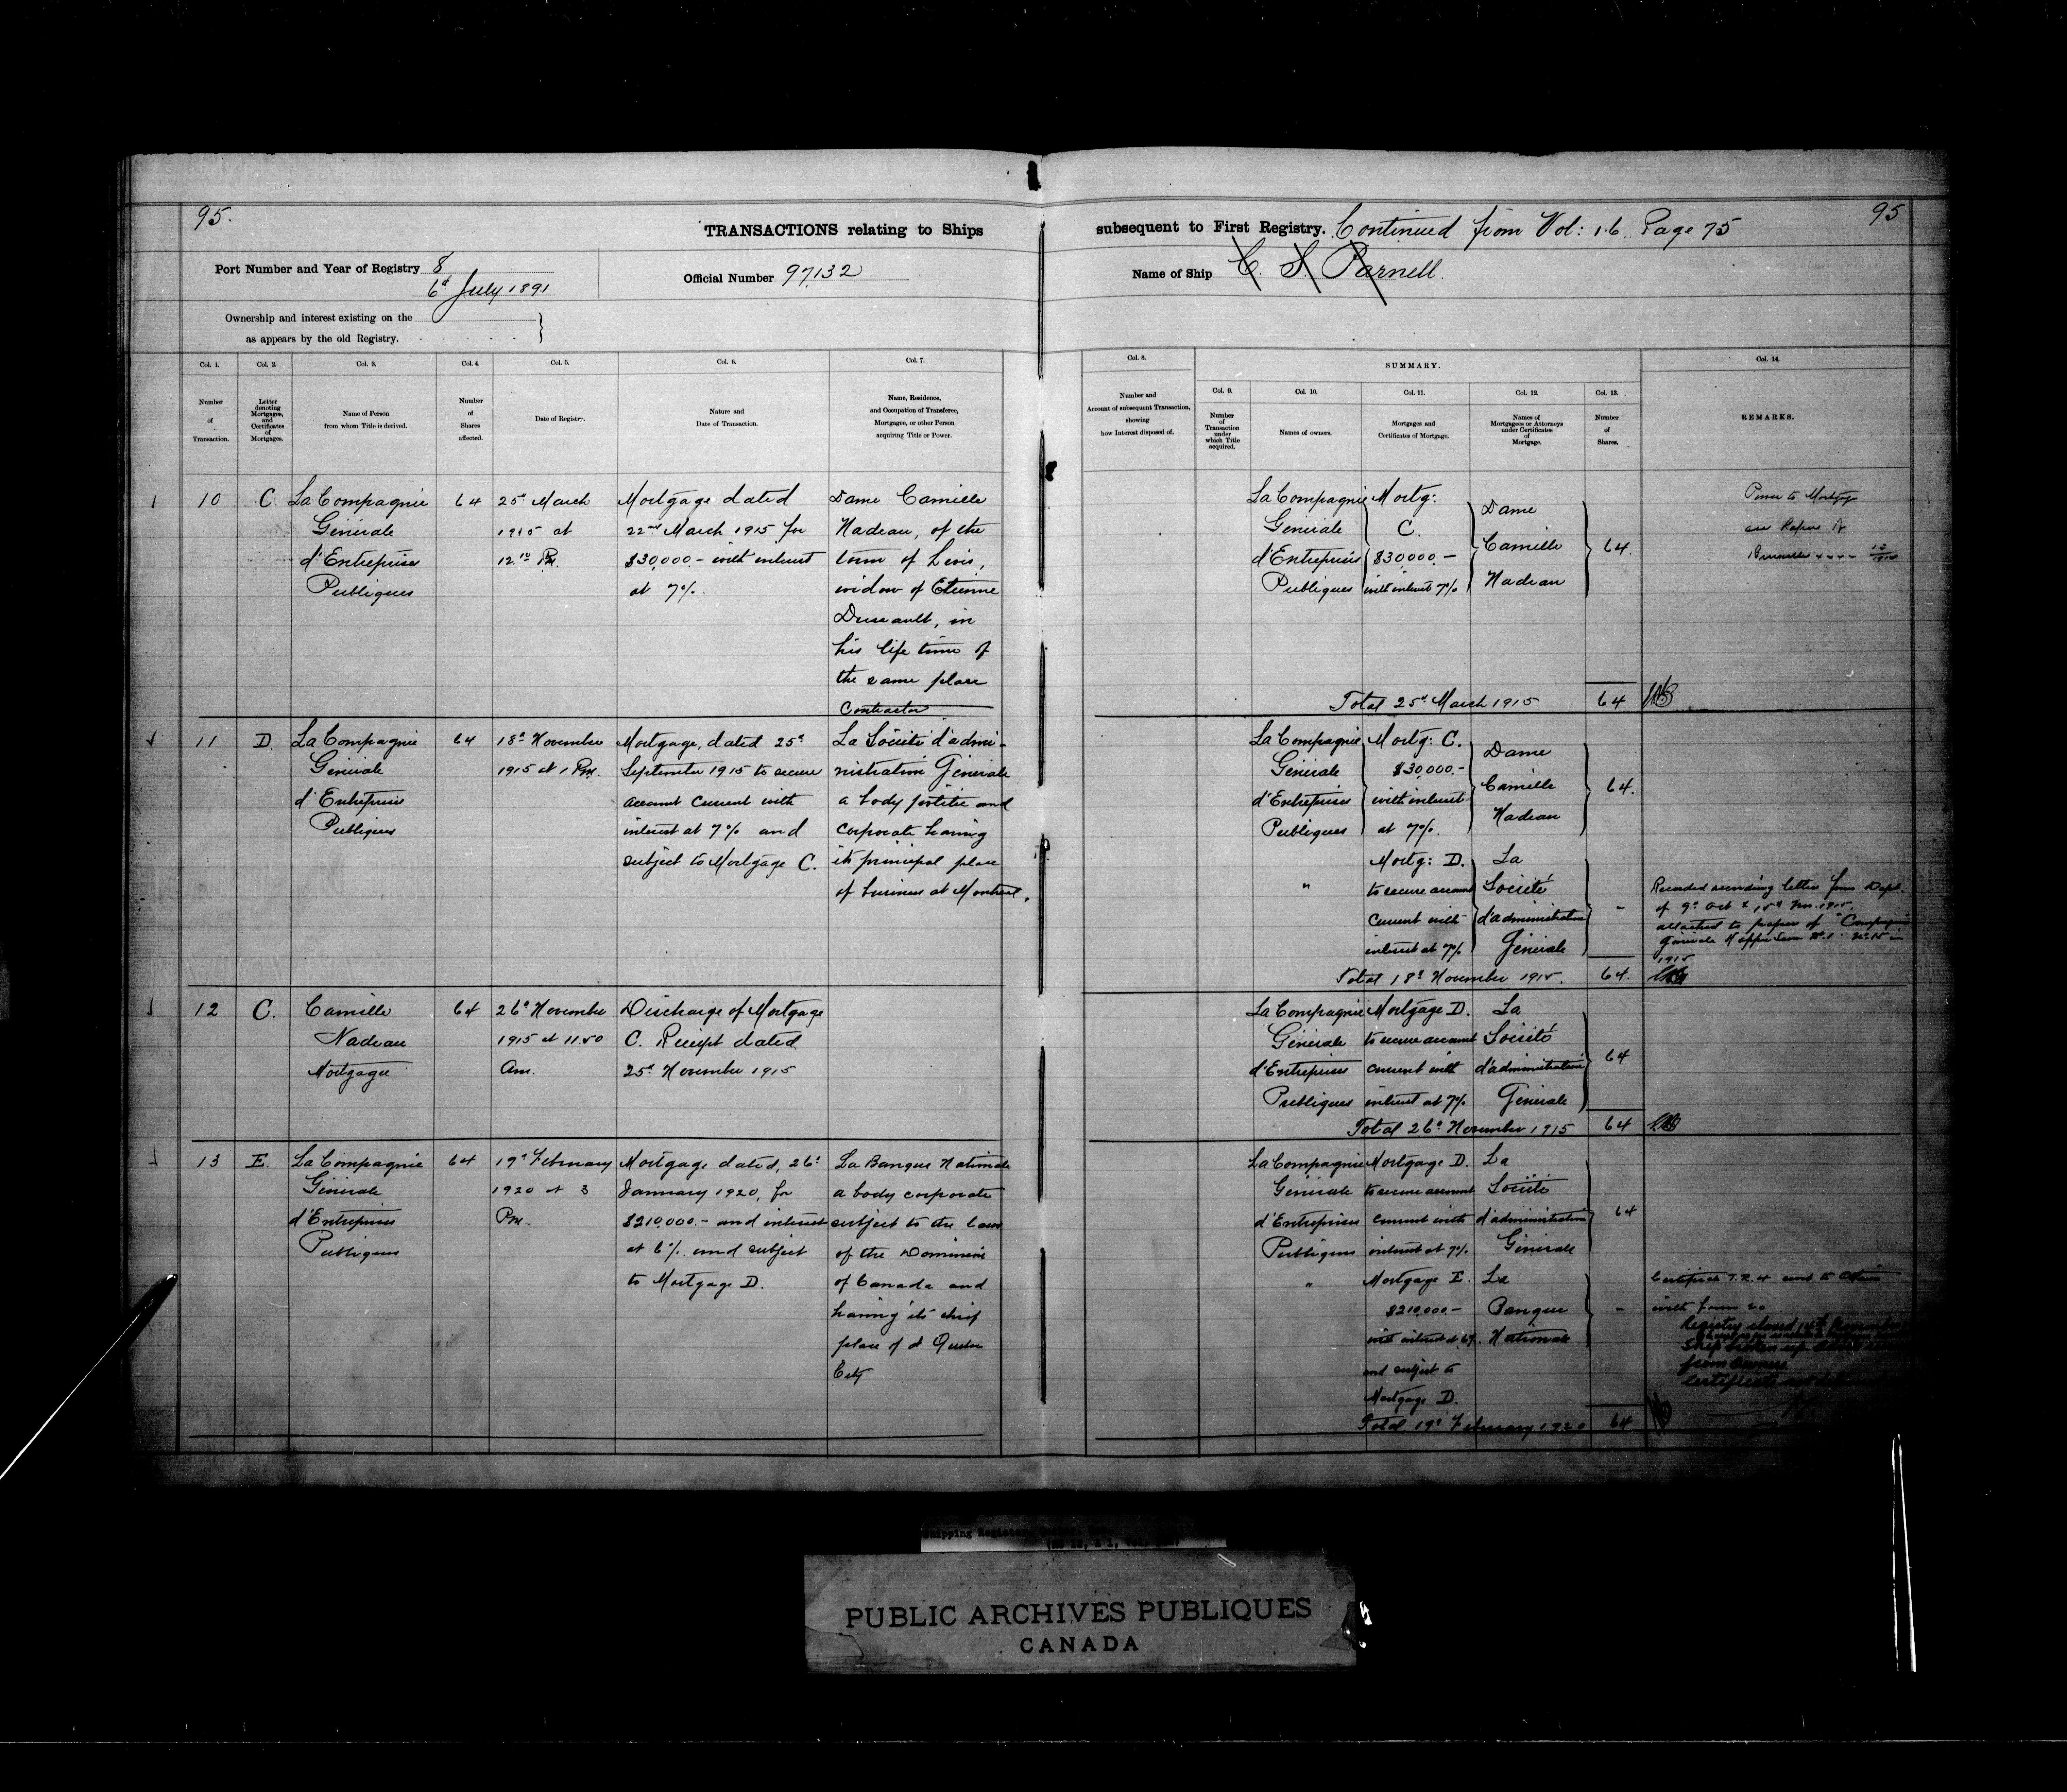 95.
TRANSACTIONS relating to Ships
Port Number and Year of Registry 8
6d July 1891
Official Number 97,132
Ownership and interest existing on the
as appears by the old Registry.
Col. 1.
Number
of
Transaction.
Col. 2.
Letter
denoting
Mortgages,
and
Certificates
of
Mortgages.
Col. 3.
Name of Person
from whom Title is derived.
Col. 4.
Number
of
Shares
affected.
Col. 5.
Date of Registry.
Col. 6.
Nature and
Date of Transaction.
Col. 7.
Name, Residence,
and Occupation of Transferee,
Mortgagee, or other Person
acquiring Title or Power.
10
C.
La Compagnie
Générale
d'Entreprises
Publiques
64
25d March
1915 at
12.10 Pm.
Mortgage dated
22nd March 1915 for
$30,000.- with interest
at 7%.
Dame Camille
Nadeau, of the
town of Levis,
widow of Etienne
Dussault, in
his life time of
the same place
Contractor
11
D.
La Compagnie
Générale
d'Entreprises
Publiques
64
18d November
1915 at 1 Pm.
Mortgage, dated 25d
September 1915 to secure
account current with
interest at 7% and
subject to Mortgage C.
La Société d'admi-
nistration Générale
a body politic and
corporate having
its principal place
of business at Montreal.
12
C.
Camille
Nadeau
Mortgagee
64
26d November
1915 at 11.50
Am.
Discharge of Mortgage
C. Receipt dated
25d November 1915
13
E.
La Compagnie
Générale
d'Entreprises
Publiques
64
19d February
1920 at 3
Pm.
Mortgage dated, 26d
January 1920, for
$210,000.- and interest
at 6% and subject
to Mortgage D.
La Banque Nationale
a body corporate
subject to the laws
of the Dominion
of Canada and
having its chief
place of at Quebec
City
95
subsequent to First Registry. Continued from Vol: 16. Page 75
Name of Ship C. S. Parnell.
Col. 8.
Number and
Account of subsequent Transaction,
showing
how Interest disposed of.
SUMMARY.
Col. 9.
Number
of
Transaction
under
which Title
acquired.
Col. 10.
Names of owners.
Col. 11.
Mortgages and
Certificates of Mortgage.
Col. 12.
Names of
Mortgagees or Attorneys
under Certificates
of
Mortgage.
Col. 13.
Number
of
Shares.
Col. 14.
REMARKS.
La Compagnie
Générale
d'Entreprises
Publiques
Mortg:
C.
$30,000.-
with interest 7%
Dame
Camille
Nadeau
64.
Power to Mortgage
Total 25d March 1915
64
La Compagnie
Générale
d'Entreprises
Publiques
Mortg: C.
$30,000.-
with interest
at 7%.
Dame
Camille
Nadeau
64.
"
Mortg: D.
to secure account
current with
interest at 7%
La
Société
d'administration
Générale
-
Recorded according letter from Dept.
of 9d Oct & 15d Nov. 1915,
attached to papers of "Compagnie
1915
Total 18d November 1915.
64.
La Compagnie
Générale
d'Entreprises
Publiques
Mortgage D.
to secure account
current with
interest at 7%
La
Société
d'administration
Générale
64
Total 26d November 1915
64
La Compagnie
Générale
d'Entreprises
Publiques
Mortgage D.
to secure account
current with
interest at 7%
La
Société
d'administration
Générale
64
"
Mortgage E.
$210,000.-
with interest at 6%.
and subject to
Mortgage D.
La
Banque
Nationale
-
Certificate T.R. & sent to Ottawa
with form 20
Registry closed
Ship broken up
from owners
Certificate not
Total 19d February 1920
64
Shipping Register
PUBLIC ARCHIVES PUBLIQUES
CANADA